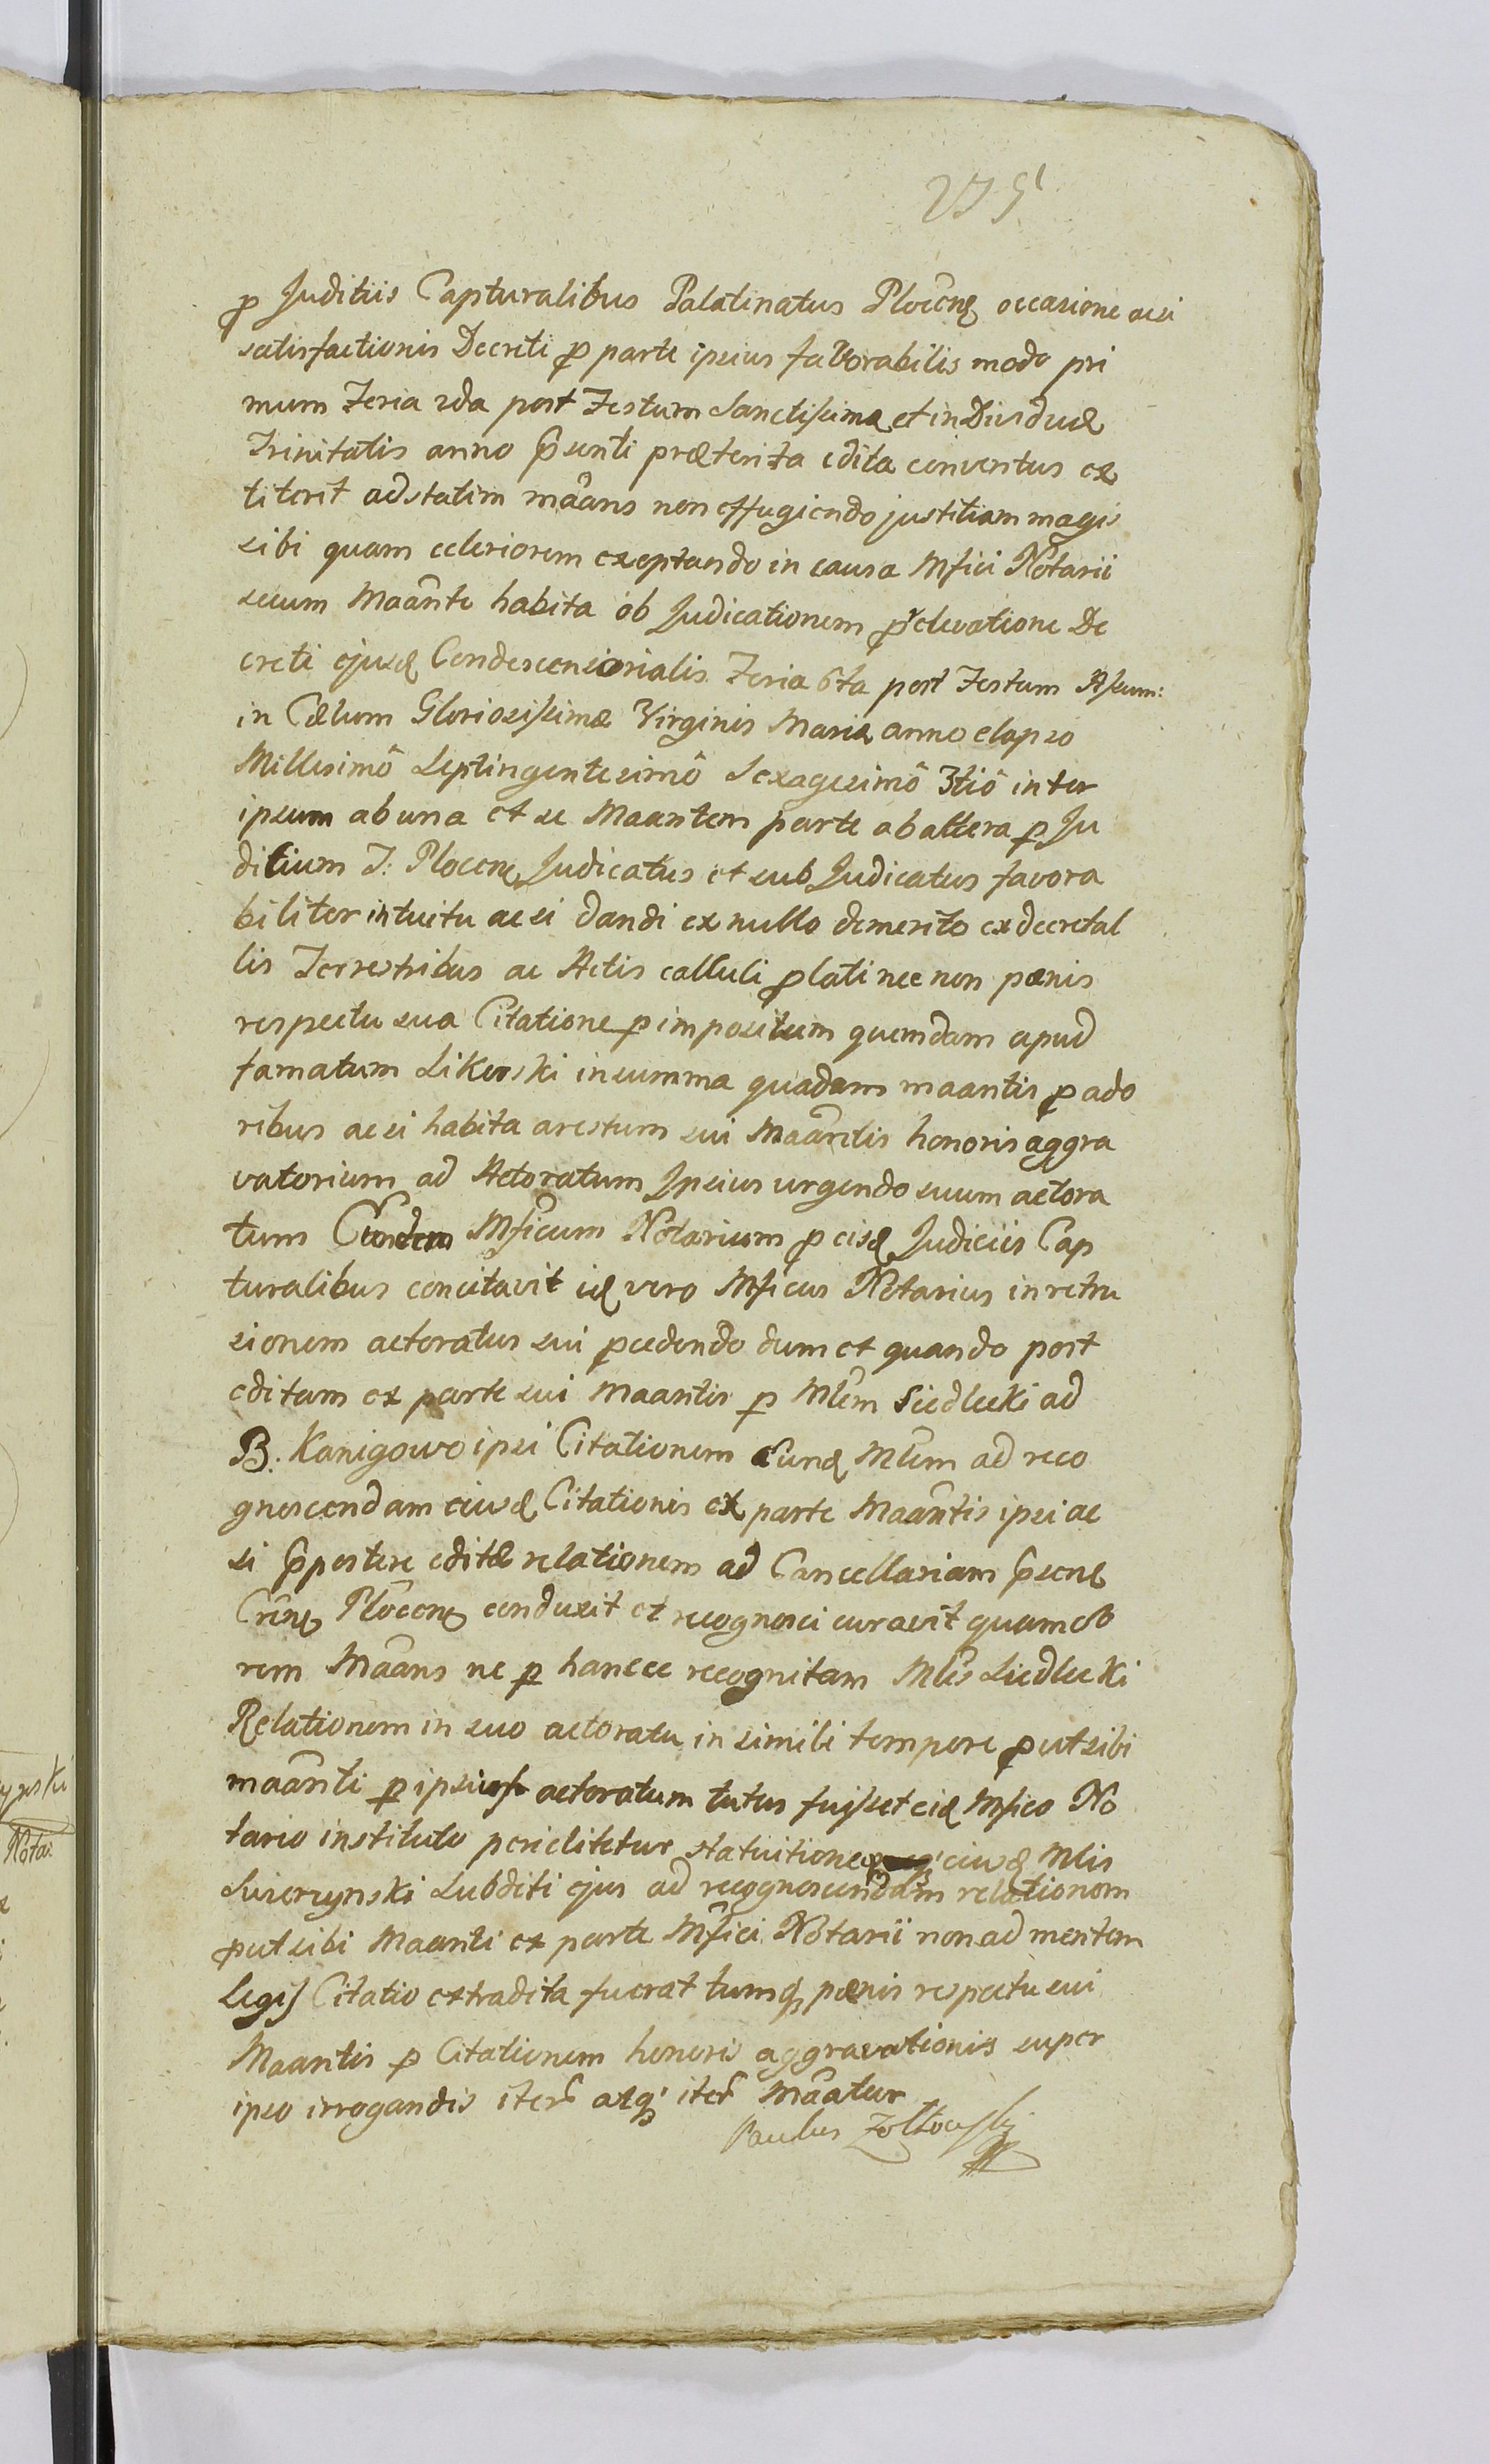 p Juditiis Capturalibus Palatinatus Plocens occasione acsi
satisfactionis Decreti p parte ipsius favorabilis modo pri
mum Feria 2da post Festum Sanctissima et individuæ
Trinitatis anno p̃senti præterita edita conventus ex
titerit adstatim mãans non effugiendo justitiam magis
sibi quam celeriorem exoptando in causa Mfici Notarii
secum Maãnte habita ob Judicationem p elevatione De
creti ejusd Condescensiorialis Feria 6ta post Festum Assum:
in Cælum Gloriosissimæ Virginis Mariæ anno elapso
Millesimô Septingentesimô Sexagesimô 3tiô inter
ipsum ab una et se Maantem parte ab altera p Ju
ditium T: Plocens Judicatus et sub Judicatus favora
biliter intuitu acsi dandi ex nullo demerito ex decretal
lis Terrestribus ac Actis calculi plati nec non pænis
respectu sua Citatione p impositum quendam apud
famatum Likowski in summa quadam maantis p ado
ribus acsi habita arestum sui Maãntis honoris aggra
vatorium ad Actoratum Ipsius urgendo suum actora
tum Eundem Mficum Notarium p eisd Judiciis Cap
turalibus concitavit id vero Mficus Notarius in retru
sionem actoratus sui pcedendo dum et quando post
editam ex parte sui Maantis p Mlem Siedlecki ad
B. Kanigowo ipsi Citationem eund Mlem ad reco
gnoscendam eiusd Citationis ex parte Maãntis ipsi ac
si p̃postere editæ relationem ad Cancellariam p̃sens
Crens Plocens conduxit et recognosci curavit quamob
rem Maãns ne p hancce recognitam Mlis Siedlecki
Relationem in suo actoratu in simili tempore put sibi
maãnti p ipsius actoratum tutus fuisset eid Mfico No
tario instituto periclitetur statuitione eiusd Mlis
Swierczynski Subditi ejus ad recognoscendam relationem
put sibi Maanti ex parte Mfici Notarii non ad mentem
Legis Citatio extradita fuerat tumq pænis respectu sui
Maantis p Citationem honoris aggravationis super
ipso irrogandis iter̃ atq iter̃ Mãatur
Paulus Zołtowski